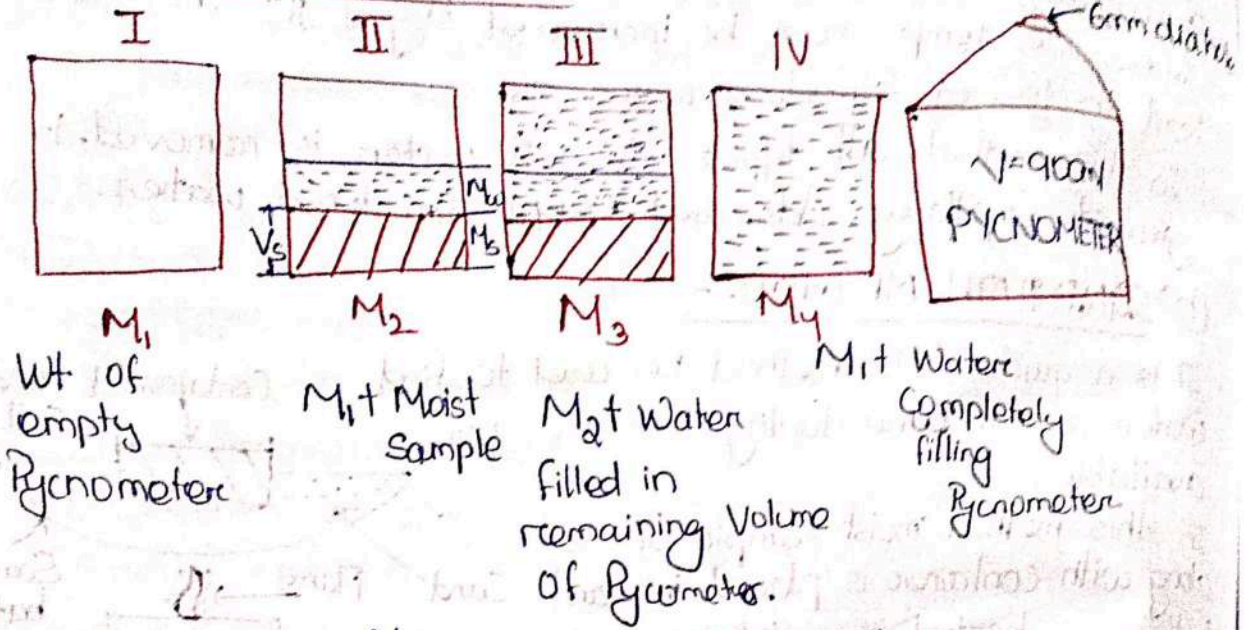 I
II
III
IV
6mm diameter
V=900ml
PYCNOMETER
Mw
Vs
Ms
M1
M2
M3
M4
Wt of
empty
Pycnometer
M1+ Moist
Sample
M2+ Water
filled in
remaining Volume
Of Pycnometer.
M1+ Water
Completely
filling
Pycnometer